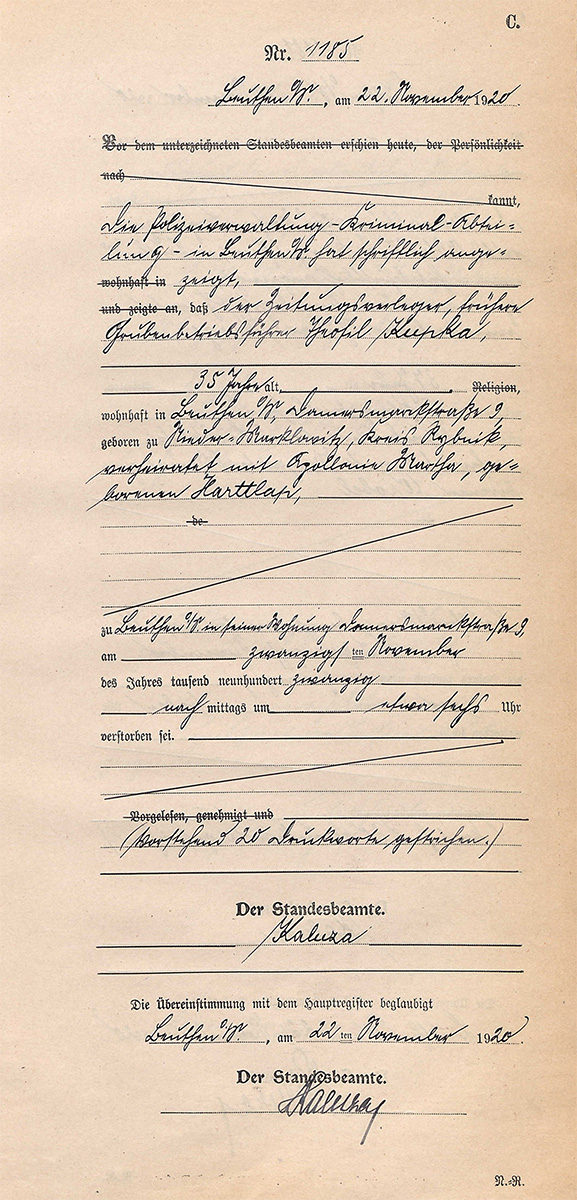 C.
Nr. 1185
Beuthen O/S., am 22. November 1920.
Vor dem unterzeichneten Standesbeamten erschien heute, der Persönlichkeit
nach
kannt,
Die Polizeiverwaltung - Kriminal-Abtei-
lung - in Beuthen O/S. hat schriftlich ange-
wohnhaft in zeigt,
und zeigte an, daß der Zeitungsverleger, frühere
Grubenbetriebsführer Theofil Kupka,
35 Jahre alt, Religion,
wohnhaft in Beuthen O/S., Damersmarckstraße 9,
geboren zu Nieder-Marklowitz, Kreis Rybnik,
verheiratet mit Apollonie Martha, ge-
borenen
de
zu Beuthen O/S. in seiner Wohnung Damersmarckstraße 9,
am zwanzigsten November
des Jahres tausend neunhundert zwanzig
nach mittags um etwa sechs Uhr
verstorben sei.
Vorgelesen, genehmigt und
(Vorstehend 20 Druckworte gestrichen.)
Der Standesbeamte.
Kaluza
Die Übereinstimmung mit dem Hauptregister beglaubigt
Beuthen O/S., am 22ten November 1920.
Der Standesbeamte.
Kaluza
N.-R.